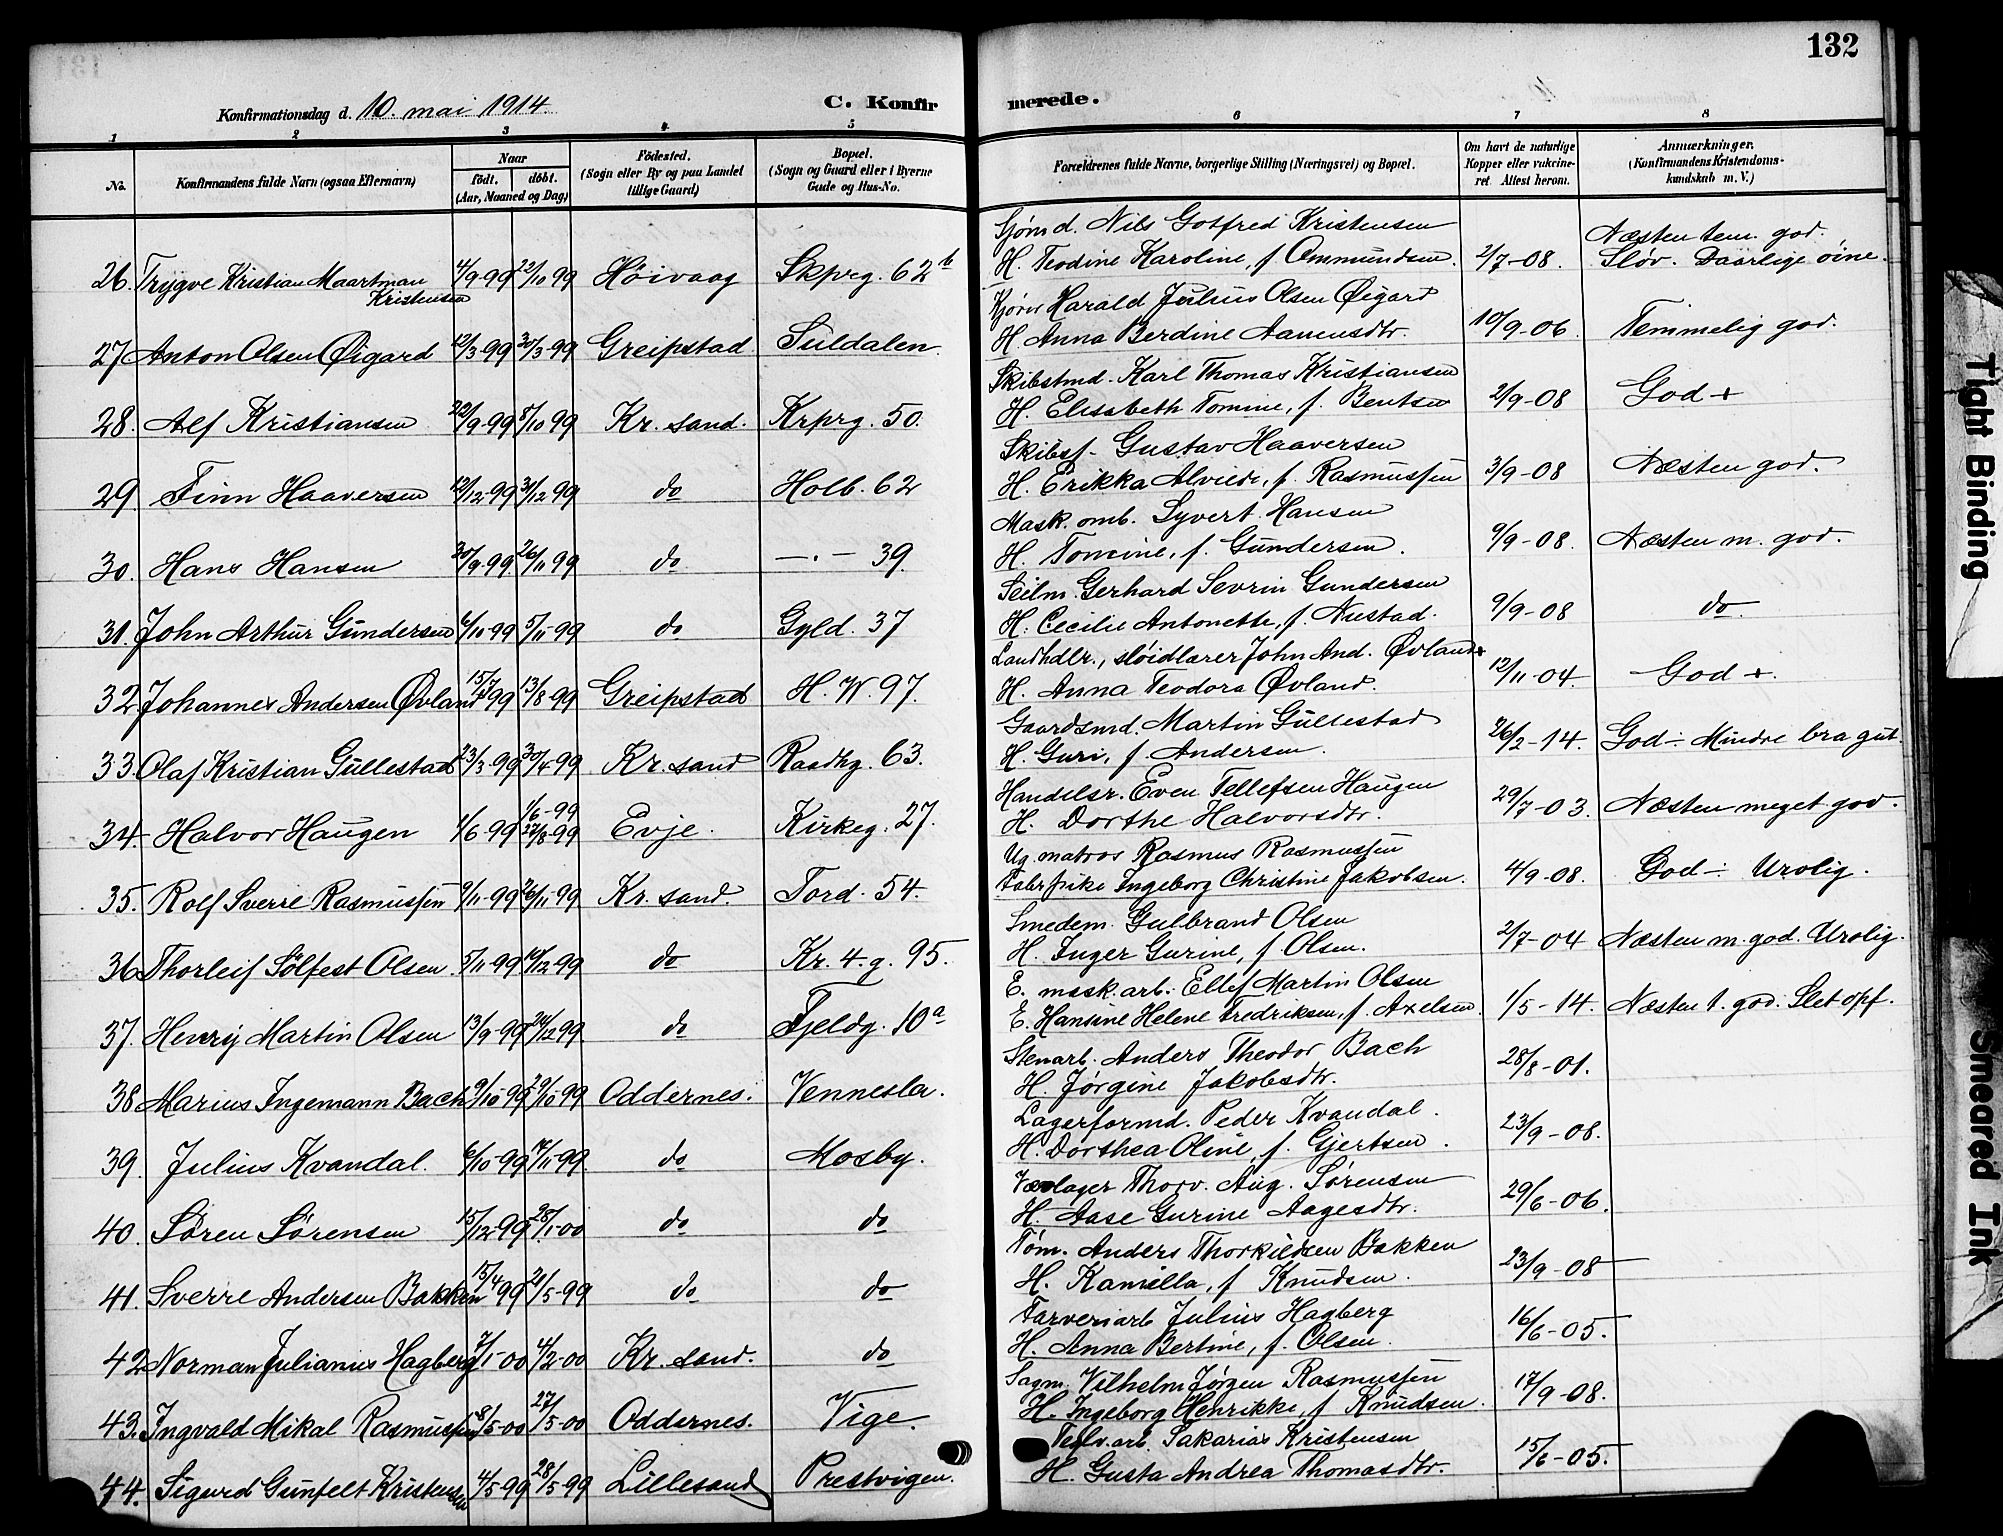 132
Konfirmationsdag d. 10. mai 1914.
C. Konfirmerede.
1 2 3 4 5 6 7 8
No. Konfirmandens fulde Navn (ogsaa Efternavn) Naar født. døbt. (Aar, Maaned og Dag) Fødested. (Sogn eller By og paa Landet tillige Gaard) Bopæl. (Sogn og Gaard eller i Byerne Gade og Hus-No. Forældrenes fulde Navne, borgerlige Stilling (Næringsvei) og Bopæl. Om havt de naturlige Kopper eller vakcineret Attest herom. Anmærkninger. (Konfirmandens Kristendomskundskab m. V.)
Sjømd. Nils Gotfred Kristensen
26. Trygve Kristian Maartman Kristensen 4/9-99 22/10 99 Høivaag Skprg. 62b H. Teodine Karoline, f Ommundsen. 2/7-08. Næsten tem. god. Sløv. Daarlige øine.
Kjører Harald Julius Olsen Øigard
27 Anton Olsen Øigard 12/3-99 30/3-99 Greipstad Suldalen. H Anna Berdine Aanensdtr. 10/9-06. Temmelig god.
Skibstmd. Karl Thomas Kristiansen
28. Alf Kristiansen 22/9-99 8/10 99 Kr. sand. Krprg. 50. H. Elisabeth Tomine, f. Bentsen 2/9-08 God +
Skibsf. Gustav Haaversen
29. Finn Haaversen 12/12-99 31/12 99 do Holb. 62 H. Erikka Alvilde, f. Rasmussen 3/9-08 Næsten god.
Mask. omb. Syvert Hansen
30. Hans Hansen 30/9-99 26/11 99 do —.— 39. H. Tomine, f. Gundersen. 9/9-08. Næsten m. god.
Seilm. Gerhard Sevrin Gundersen
31. John Arthur Gundersen 6/10-99 5/11-99 do Gyld. 37 H. Cecilie Antonette, f. Nustad. 9/9-08 do
Landhdlr., sløidlærer John And. Øvland
32. Johannes Andersen Øvland 15/7 99 13/8-99 Greipstad H. W. 97. H. Anna Teodora Øvland. 12/11-04. God +.
Gaardsmd. Martin Gullestad
33. Olaf Kristian Gullestad 23/3-99 30/4-99 Kr. sand Raadhg. 63. H. Guri, f Andersen. 26/2-14. God ÷ Mindre bra gut.
Handelsr. Even Tellefsen Haugen
34. Halvor Haugen 1/6-99 1/6-99 27/8-99 Evje. Kirkeg. 27. H. Dorthe Halvorsdtr. 29/7-03. Næsten meget god.
Ug. matros Rasmus Rasmussen
35. Rolf Sverre Rasmussen 9/11-99 26/11 99 Kr. sand. Tord. 54. Fabr pike Ingeborg Christine Jakobsen. 4/9-08. God ÷ Urolig.
Smedem. Gulbrand Olsen
36. Thorleif Sølfest Olsen 5/11-99 10/12-99 do Kr. 4. g. 95. H. Inger Gurine, f Olsen. 2/7-04 Næsten m. god. Urolig.
E. mask. arb. Ellef Martin Olsen
37. Henry Martin Olsen 13/9-99 24/12 99. do Fjeldg. 10a E. Hansine Helene Fredriksen, f. Axelsen. 1/5-14. Næsten t. god. Slet opf.
Stenarb. Anders Theodor Bach
38. Marius Ingemann Bach 9/10-99 29/10 99 Oddernes. Vennesla. H. Jørgine Jakobsdtr. 28/8-01.
Lagerformd. Peder Kvandal.
39. Julius Kvandal. 6/10-99 12/11-99. do Mosby. H. Dorthea Oline, f. Gjertsen. 23/9-08.
Thorv. Aug. Sørensen
40. Søren Sørensen 15/12-99 28/1-00 do do H. Aase Gurine Aagesdtr. 29/6-06.
Tøm. Anders Thorkildsen Bakken
41. Sverre Andersen Bakken 15/4 99 21/5-99 do do H. Kamilla, f Knudsen. 23/9-08
Farveriarb Julius Hagberg
42. Norman Julianius Hagberg 7/1-00 4/2-00 Kr. sand. do H. Anna Bertine, f. Olsen. 16/6-05.
Sagm. Vilhelm Jørgen Rasmussen
43. Ingvald Mikal Rasmussen 8/5-00 27/5-00 Oddernes. Vige. H. Ingeborg Henrikke, f Knudsen. 17/9-08.
Sakarias Kristensen
44. Sigurd Gunfelt Kristensen 4/5-99 28/5-99 Lillesand Prestvigen. H. Gusta Andrea Thomasdtr. 15/6-05.
Tight Binding
Smeared Ink